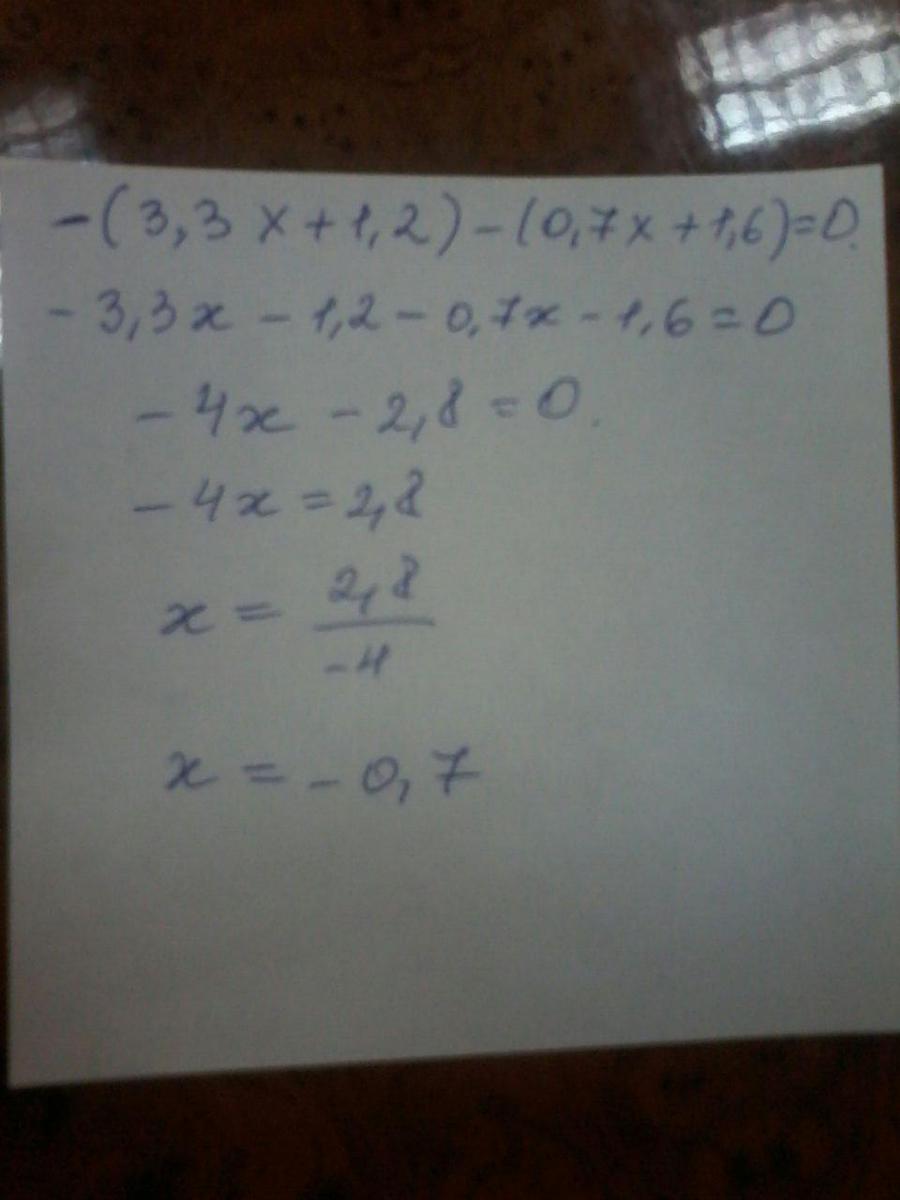 -(3,3x+1,2)-(0,7x+1,6)=0.
-3,3x-1,2-0,7x-1,6=0
-4x-2,8=0.
-4x=2,8
x=2,8/-4
x=-0,7